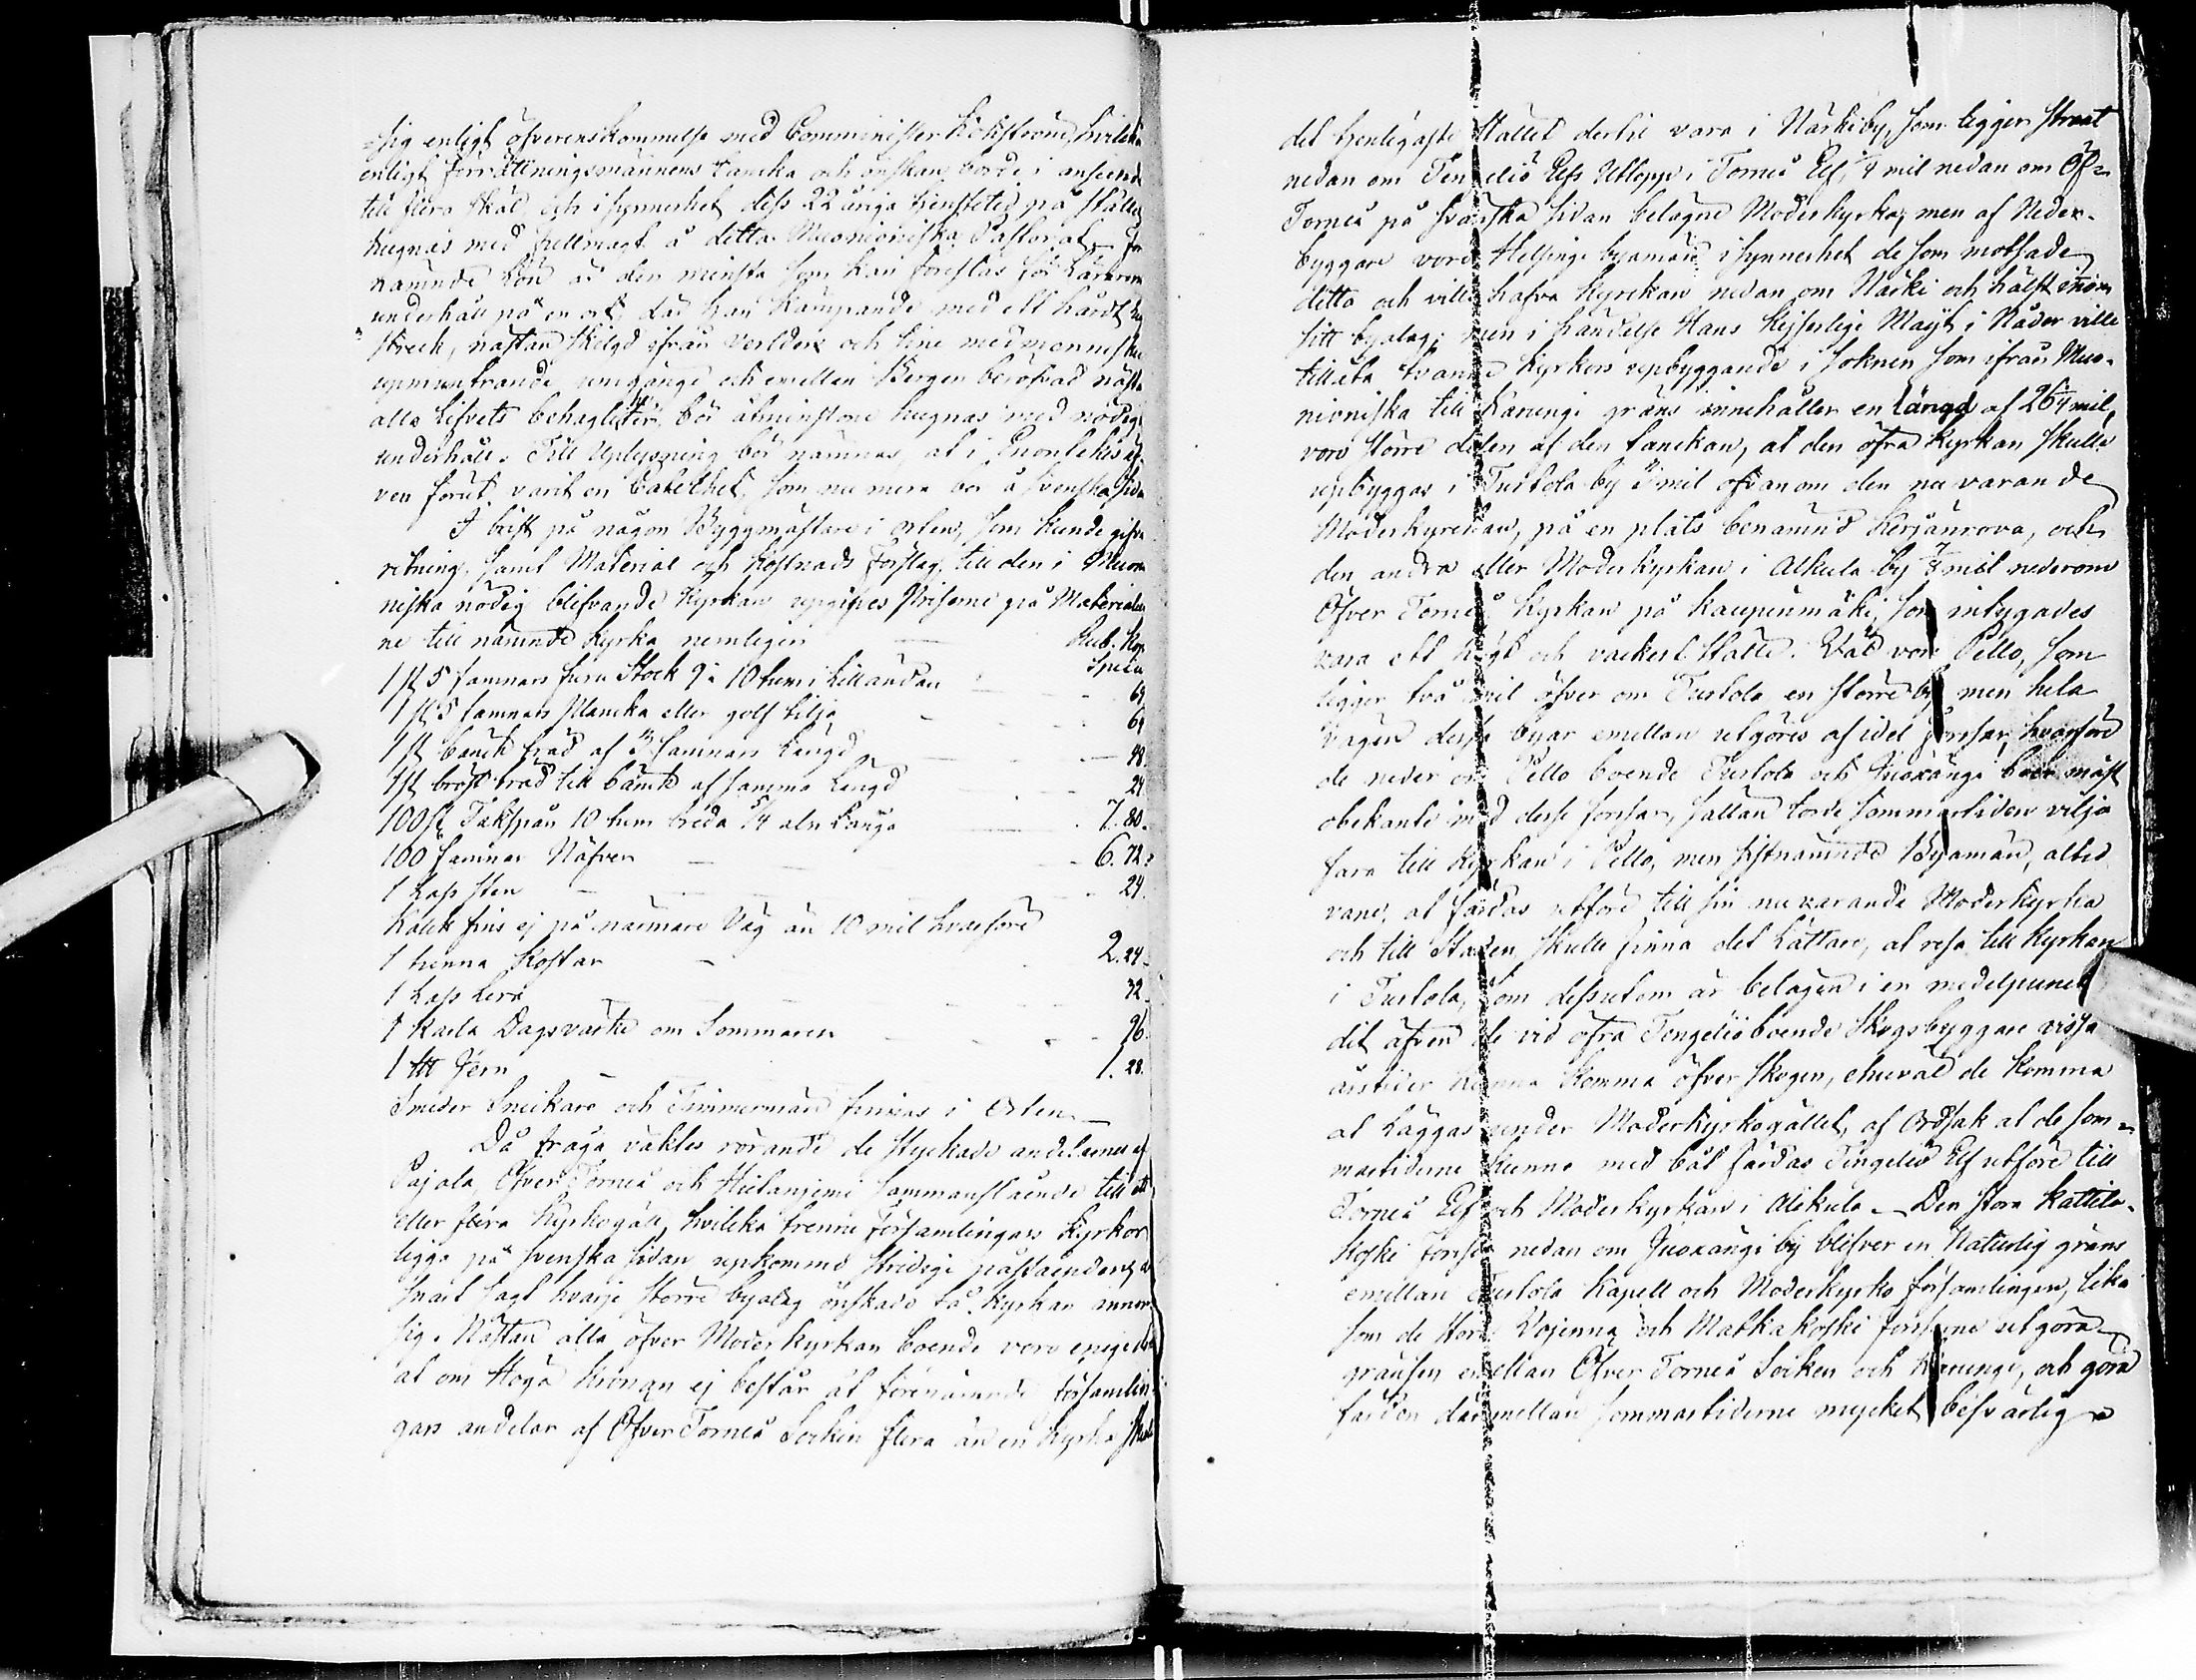 sig enligt öfverenskommelse med Comminister Kohlström, hvilken
enligt förrättningsmännens tancka och önskan, borde i anseende
till flera skäl, och i synnerhet dess 22 åriga tjenstetid på stället
hugnas med fullmagt å detta Muonioniska Pastorat.
nämnde Lön är den minsta som kan föreslås för Lärarens
underhåll på en ort, där han kämpande med ett hårdt
streck, nästan skilgd ifrån verlden och sine medmenniskors
upmuntrande umgänge och emellan Bergen beröfvad nästan
alla lifvets behagligheter, bör åtminstone hugnas med nödigt
underhåll. Till Uplysning bör nämnas, at i Enontekis äf-
ven förut varit en Catechet, som nu mera bor å svenska sidan
I brist på någon Byggmästare i orten, som kunde gifva
ritning, samt Material och Kostnads Förslag, till den i Muonio
niska nödig blifvande Kyrkan upgifves Priserne på Materialier
ne till nämnde Kyrka nemligen Rub. Kop.
Specie
1 st 5 famnars furu Stock 9 à 10 tum i lilländan 64
1 st 5 famnars Plancka eller golf tilja 64
1 st bänck träd af 3 famnars Längd 48.
1 st bröst träd till bänck af samma Längd 24
100 st Takspån 10 tum breda 5/4 aln Långa 7. 80.
100 famnar Näfver 6. 72.
1 Lass sten 24.
Kalck fins ej på närmare Väg än 10 mil hvarföre
1 tunna kostar 2. 24.
1 Lass Lera 32.
1 Karla Dagsvärke om Sommaren 96.
1 ℔ Jern 1. 28.
Smeder Sneikare och Timmermän finnas i Orten.
Då fråga väktes rörande de styckade andelarne af
Pajala, Öfver Torneå och Hietaniemi sammanstående till ett
eller flera Kyrkogäll, hvilka trenne församlingars Kyrkor
ligga på svenska sidan upkommo stridige påståenden,
snart sagt hvarje större byalag önskade få Kyrkan inom
sig. Nästan alla öfver Moderkyrkan boende voro
at om Höga Kronan ej består åt förenämnde församlin-
gars andelar af Öfver Torneå Socken flera än en Kyrka
det tjenligaste Stället dertil vara i Närkiby, som ligger strast
nedan om Tengeliö Elfs Utlopp i Torneå Elf, 1/4 mil nedan om Öf=
Torneå på svänska sidan belägne Moderkyrka; men af Neder-
byggare voro Helsinge byamän isynnerhet de som motsade
detta och ville hafva Kyrckan nedan om Närki och hälst inom
sitt byalag; men i händelse Hans Kejserlige Mayt i Nåder ville
tillåta tvänne Kyrkors upbyggande i soknen som ifrån Muo-
nioniska till Karungi gräns innehåller en längd af 26 1/4 mil,
voro större delen af den tanckan, at den öfra Kyrkan skulle
upbyggas i Turtola by mil ofvanom den nu varande
Moderkyrckan, på en plats benämnd Kersänrova, och
den andra eller Moderkyrkan i Alkula by 7/8 mil nederom
Öfver Torneå Kyrkan på Kaupinmäki, som intygades
vara ett högt och vackert Ställe. Väl vore Pello, som
ligger två mil öfver om Turtola en större by men hela
Vägen dessa byar emellan utgöres af idel forssar, hvarföre
de neder om Pello boende Turtola och Juoxängi boer mäst
obekante med desse forssar, sällan torde sommartiden vilja
fara till Kyrkan i Pello, men sistnämnde Byamän, altid
vane, at färdas utföre till sin nu varande Moderkyrka
och till Staden, skulle finna det lättare, at resa till Kyrkan
i Turtola, som dessutom är belägen i en medelpunct
dit äfven de vid öfra Tengeliö boende Skogsbyggare vissa
årstider kunna komma öfver skogen, ehuruväl de komma
at läggas under Moderkyrkogället, af Ordsak at de som-
martiderne kunna med båt färdas Tengeliö Elf utföre till
Torneå Elf och Moderkyrkan i Alkula. Den stora Kattila-
koski Forssen nedan om Juoxängi by blifver en Naturlig gräns
emellan Turtola Kapell och Moderkyrko församlingen, lika
som de stora Vojenna och Matkakoski forssarne utgöra
gränsen emellan Öfver Torneå Socken och Karungi, och göra
färden därmellan sommartiderne mycket besvärlig